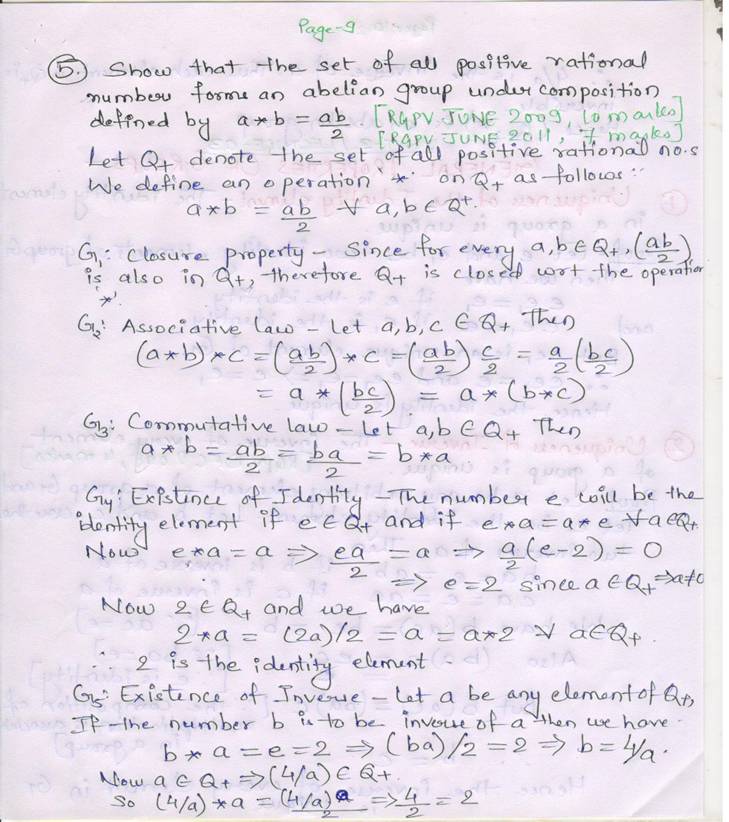 Page-9
5. Show that the set of all positive rational
number forms an abelian group under composition
defined by a*b = ab/2 . [RGPV JUNE 2009, 10 marks]
[RGPV JUNE 2011, 7 marks]
Let Q₊ denote the set of all positive rational no.s
We define an operation '*' on Q₊ as follows:
a*b = ab/2 ∀ a,b ∈ Q⁺.
G₁: Closure property – Since for every a,b ∈ Q₊, (ab/2)
is also in Q₊, therefore Q₊ is closed wrt the operation
'*'.
G₂: Associative law – Let a,b,c ∈ Q₊ Then
(a*b)*c = (ab/2)*c = (ab/2) c/2 = a/2 (bc/2)
= a * (bc/2) = a*(b*c)
G₃: Commutative law – Let a,b ∈ Q₊ Then
a*b = ab/2 = ba/2 = b*a
G₄: Existence of Identity – The number e will be the
identity element if e ∈ Q₊ and if e*a = a*e ∀ a ∈ Q₊
Now e*a = a ⇒ ea/2 = a ⇒ a/2 (e-2) = 0
⇒ e=2 since a ∈ Q₊ ⇒ a≠0
Now 2 ∈ Q₊ and we have
2*a = (2a)/2 = a = a*2 ∀ a ∈ Q₊.
∴ 2 is the identity element
G₅: Existence of Inverse – Let a be any element of Q₊,
If the number b is to be inverse of a then we have.
b*a = e = 2 ⇒ (ba)/2 = 2 ⇒ b = 4/a.
Now a ∈ Q₊ ⇒ (4/a) ∈ Q₊.
So (4/a)*a = (4/a)a/2 ⇒ 4/2 = 2